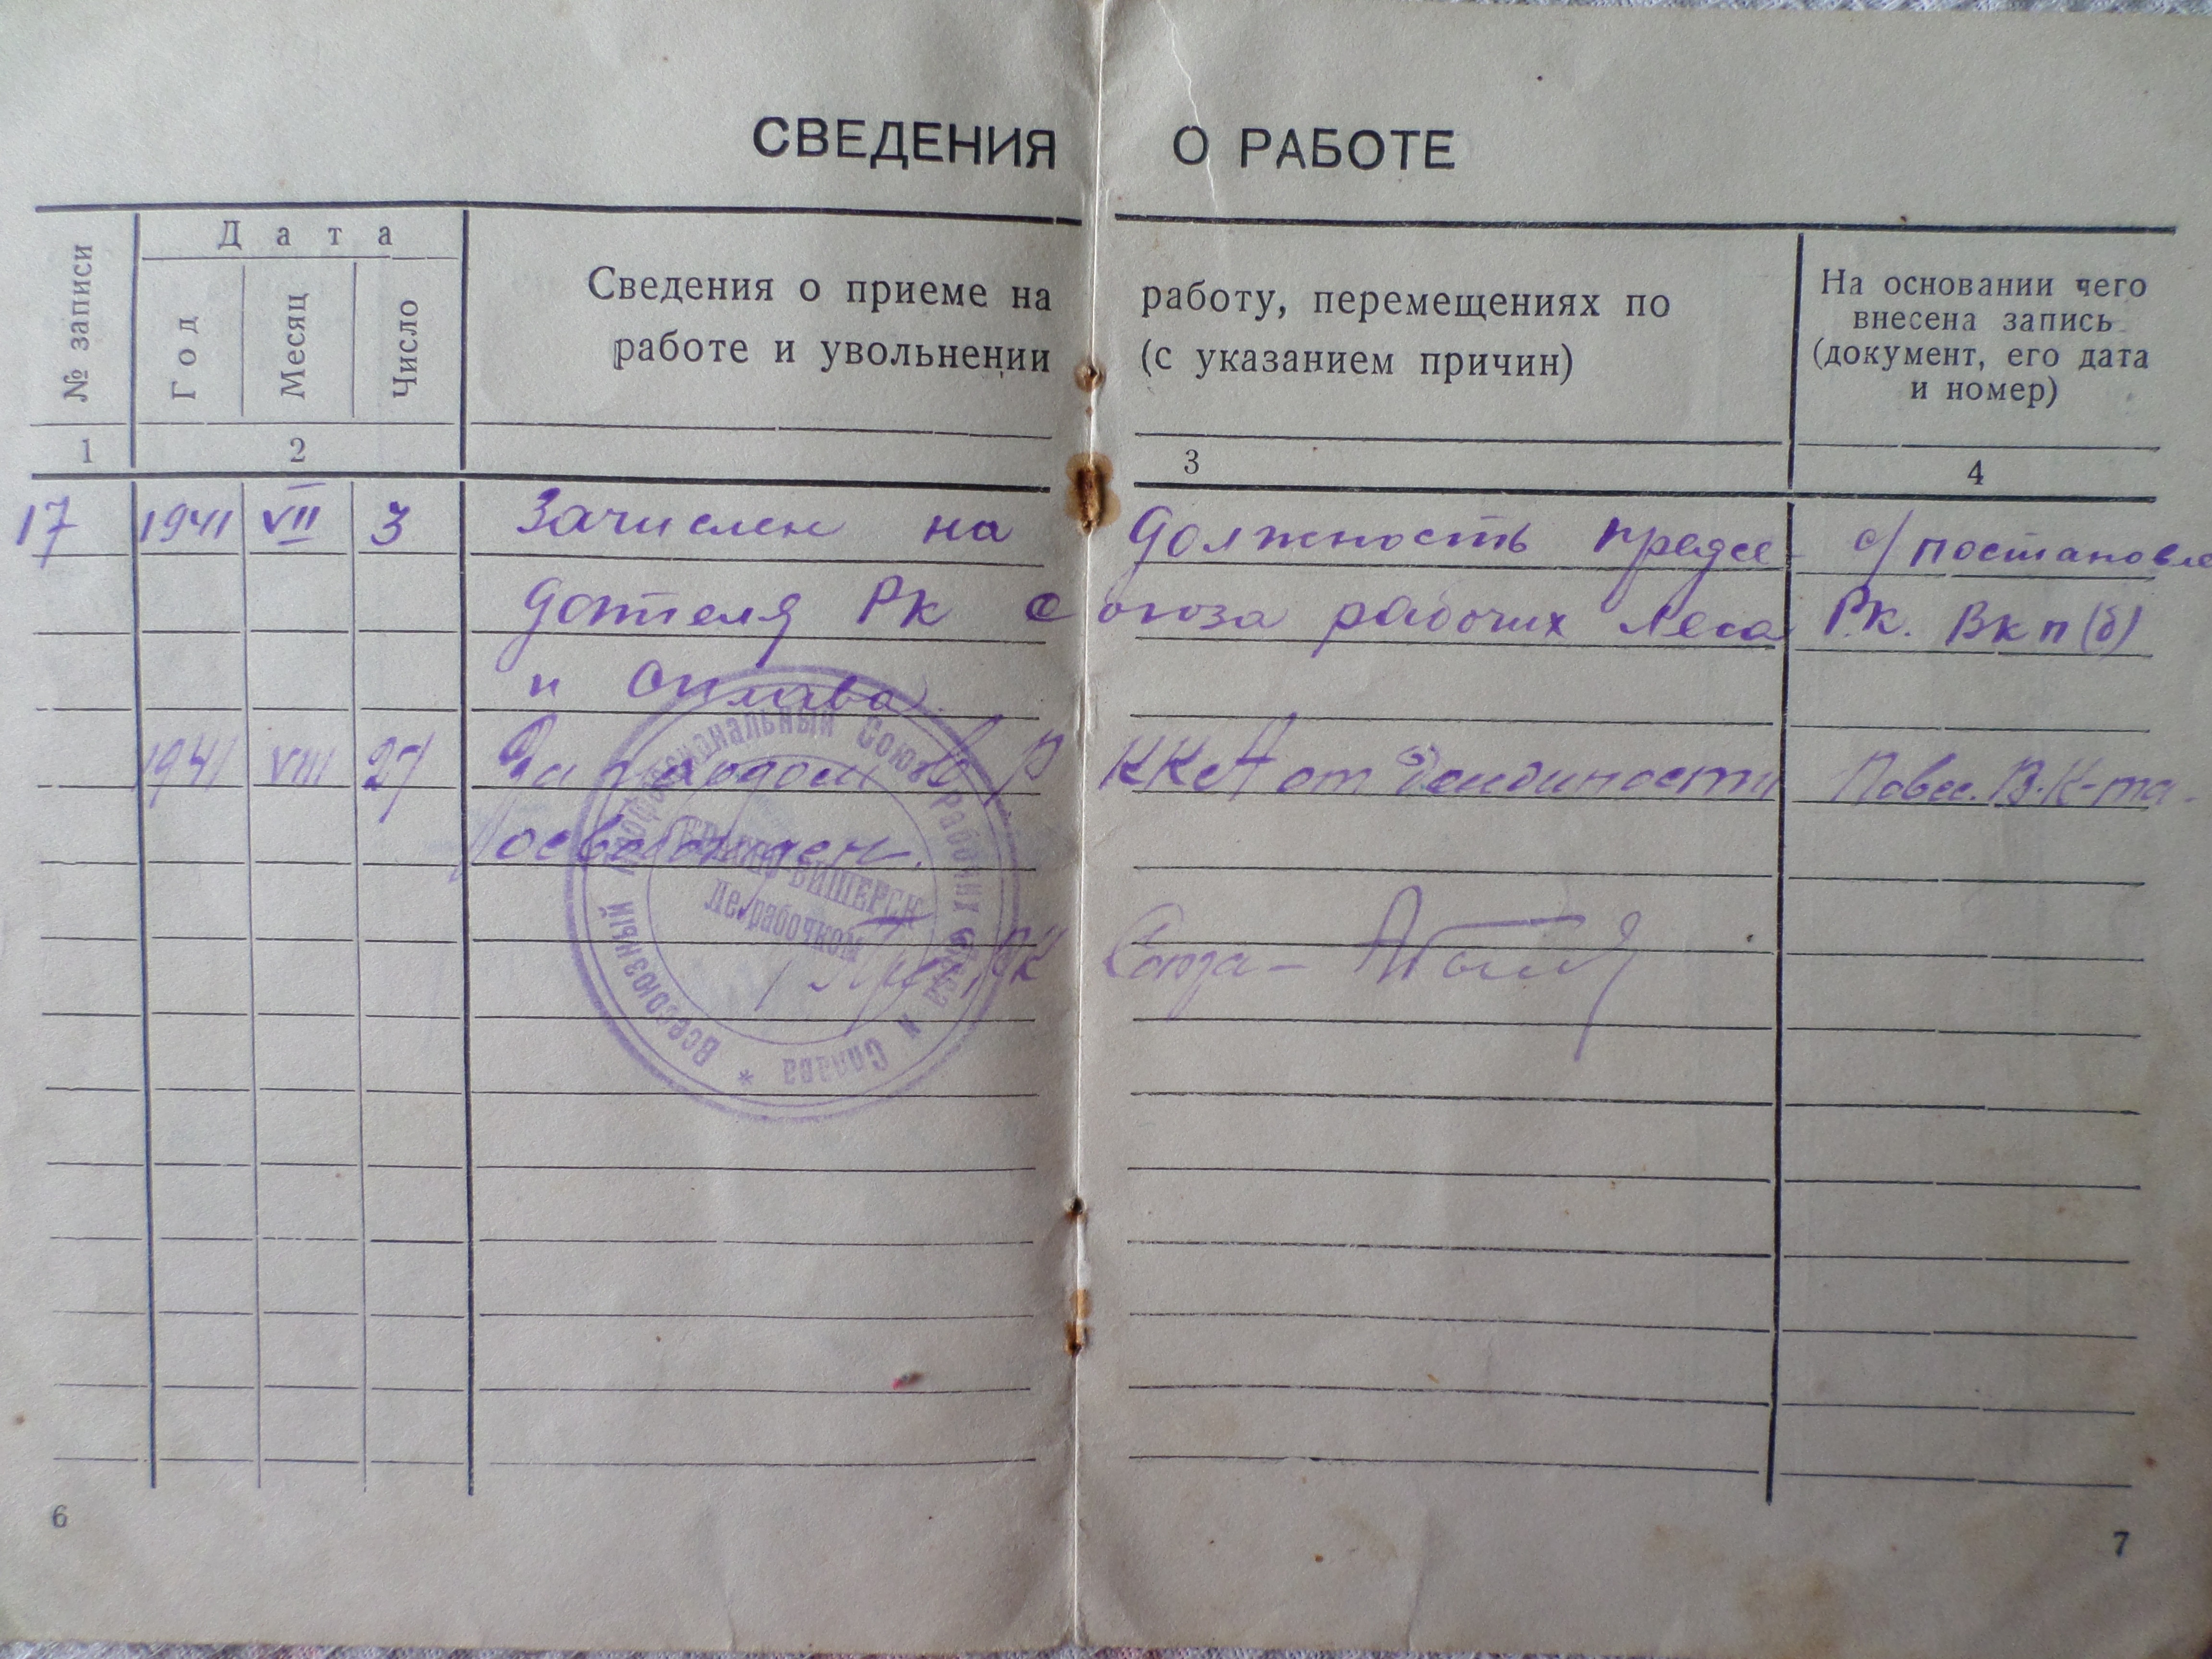 СВЕДЕНИЯ О РАБОТЕ
№ записи
Дата
Год
Месяц
Число
Сведения о приеме на работу, перемещениях по
работе и увольнении (с указанием причин)
На основании чего
внесена запись
(документ, его дата
и номер)
1 2 3 4
17 1941 VII 3 Зачислен на должность предсе- с/ постановле
дателя РК союза рабочих леса РК. ВКП(б)
и сплава.
1941 VIII 27 За уходом в РККА от должности Повес. В.К-та.
освобожден.
РК Союза –
Всесоюзный Профессиональный Союз рабочих леса и Сплава *
ВИШЕРСК
рабочком
6
7